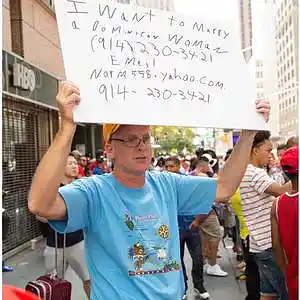 I Want to Marry
a Dominican Woman
(914) 230-3421
EMail
NorM558.yahoo.com
914-230-3421
HBO